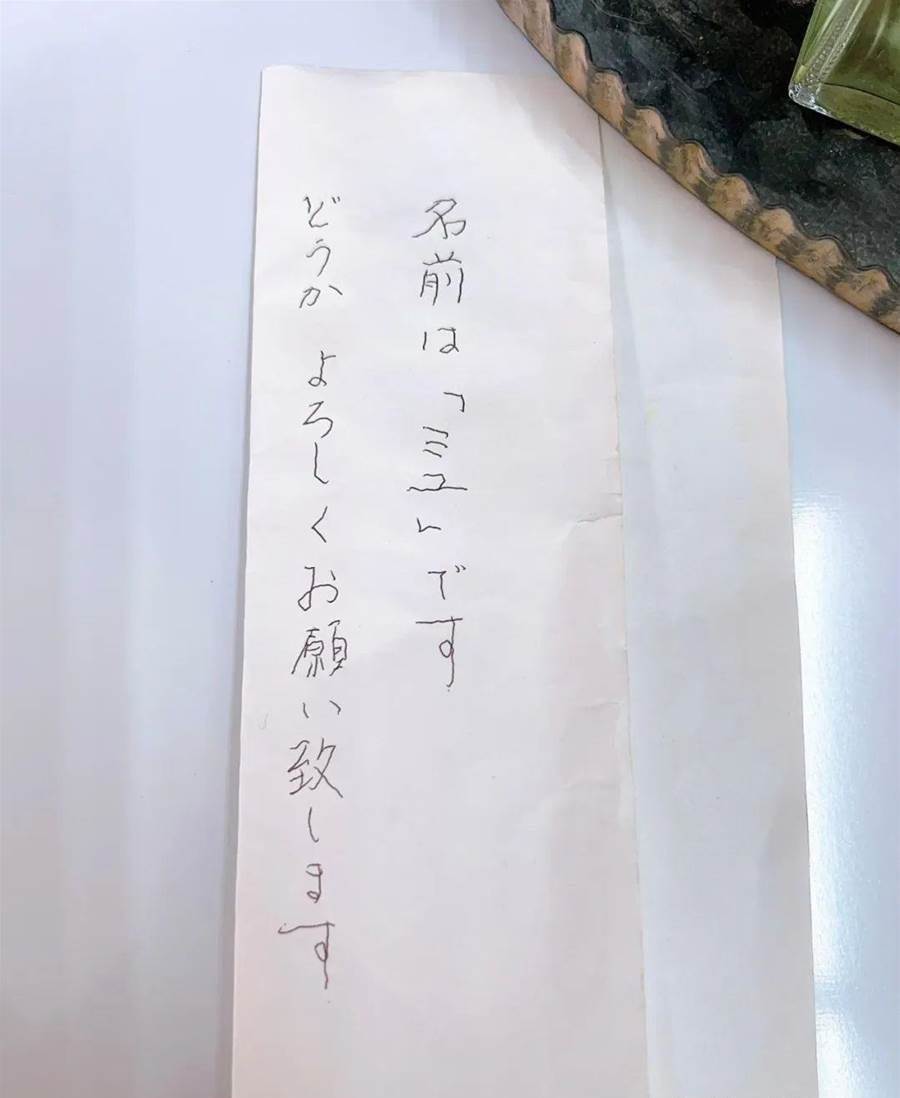 名前は「ミュ」です
どうか よろしくお願い致します